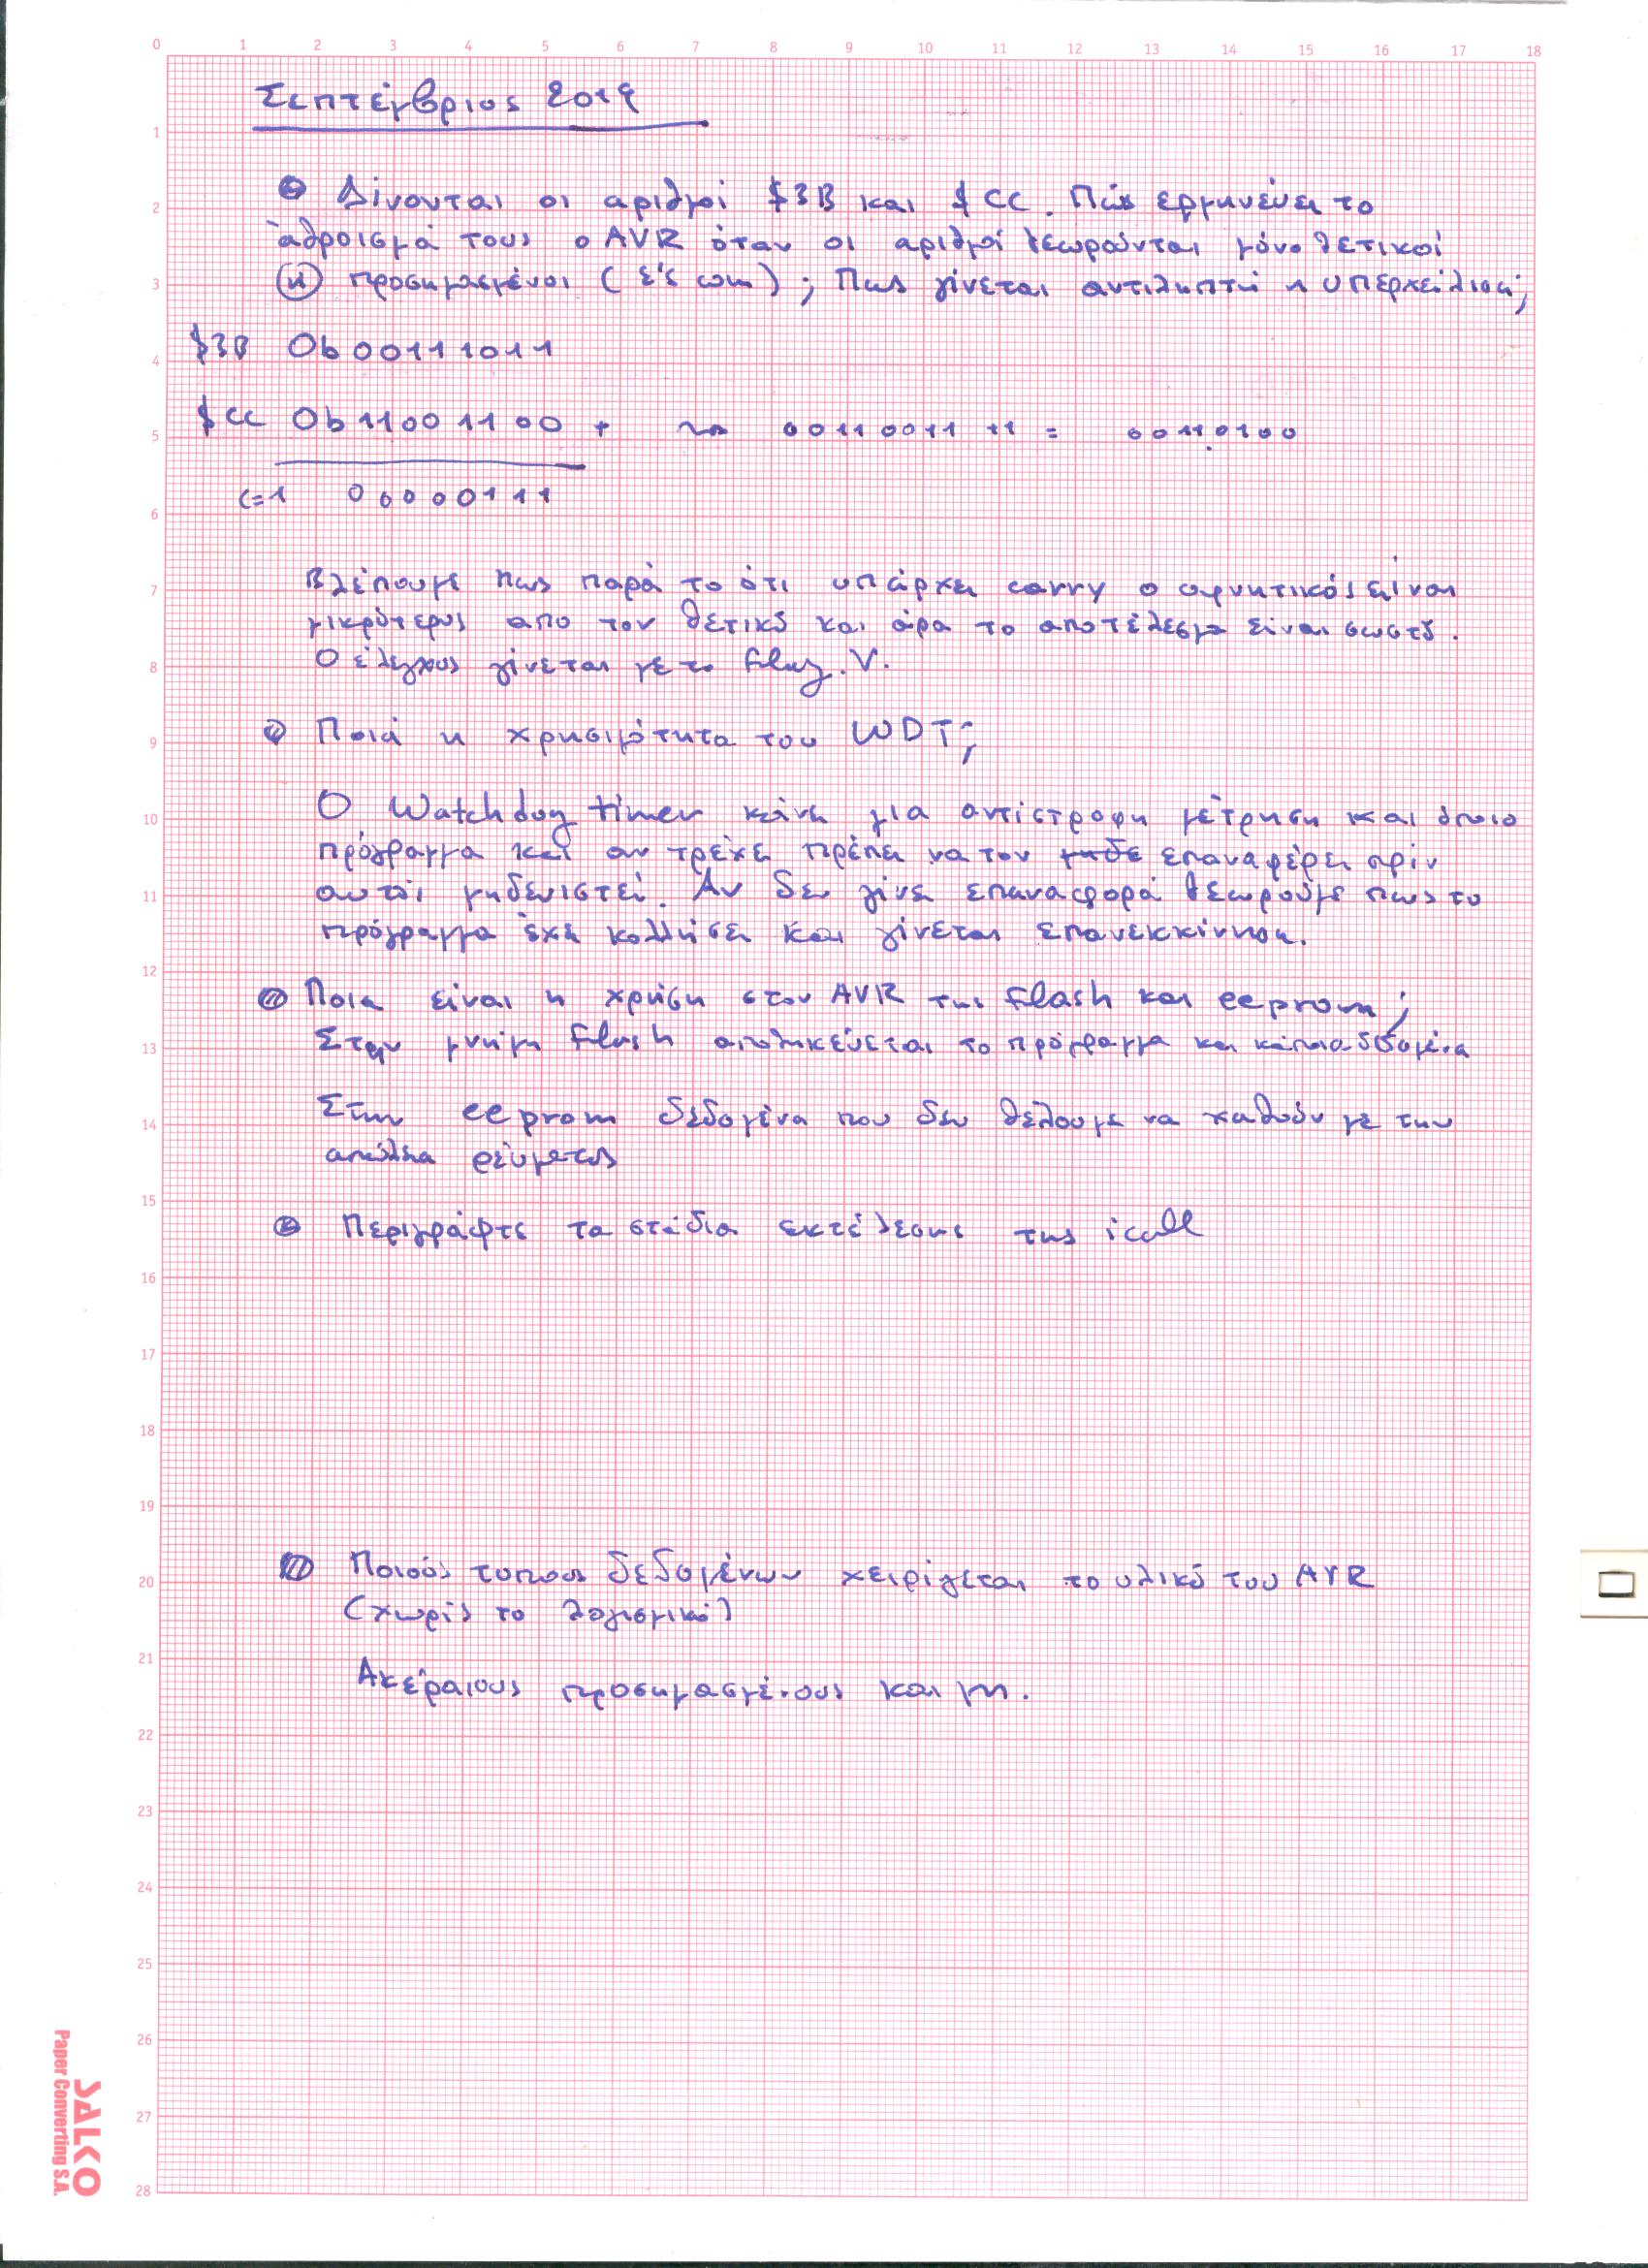 0 1 2 3 4 5 6 7 8 9 10 11 12 13 14 15 16 17 18
Σεπτέμβριος 2019
Δίνονται οι αριθμοί $3B και $CC. Πώς ερμηνεύει το
άθροισμά τους ο AVR όταν οι αριθμοί θεωρούνται μόνο θετικοί
(ή) προσημασμένοι (σ's com); Πως γίνεται αντιληπτή η υπερχείλιση;
$3B 0b00111011
$CC 0b11001100 + ~> 00110011 +1 = 00110100
C=1 00000111
Βλέπουμε πως παρά το ότι υπάρχει carry ο αρνητικός είναι
μικρότερος απο τον θετικό και άρα το αποτέλεσμα είναι σωστό.
Ο έλεγχος γίνεται με το flag.V.
Ποιά η χρησιμότητα του WDT;
Ο Watchdog timer κάνει μια αντίστροφη μέτρηση και όποιο
πρόγραμμα και αν τρέχει πρέπει να τον επαναφέρει πρίν
αυτός μηδενιστεί. Αν δεν γίνει επαναφορά θεωρούμε πως το
πρόγραμμα έχει κολλήσει και γίνεται επανεκκίννηση.
Ποια είναι η χρήση στον AVR της flash και eeprom;
Στην μνήμη flash αποθηκεύεται το πρόγραμμα και κάποια δεδομένα
Στην eeprom δεδομένα που δεν θέλουμε να χαθούν με την
απώλεια ρεύματος
Περιγράψτε τα στάδια εκτέλεσης της icall
Ποιούς τύπους δεδομένων χειρίζεται το υλικό του AVR
(χωρίς το λογισμικό)
Ακέραιους προσημασμένους και μη.
1
2
3
4
5
6
7
8
9
10
11
12
13
14
15
16
17
18
19
20
21
22
23
24
25
26
27
28
SALKO
Paper Converting S.A.